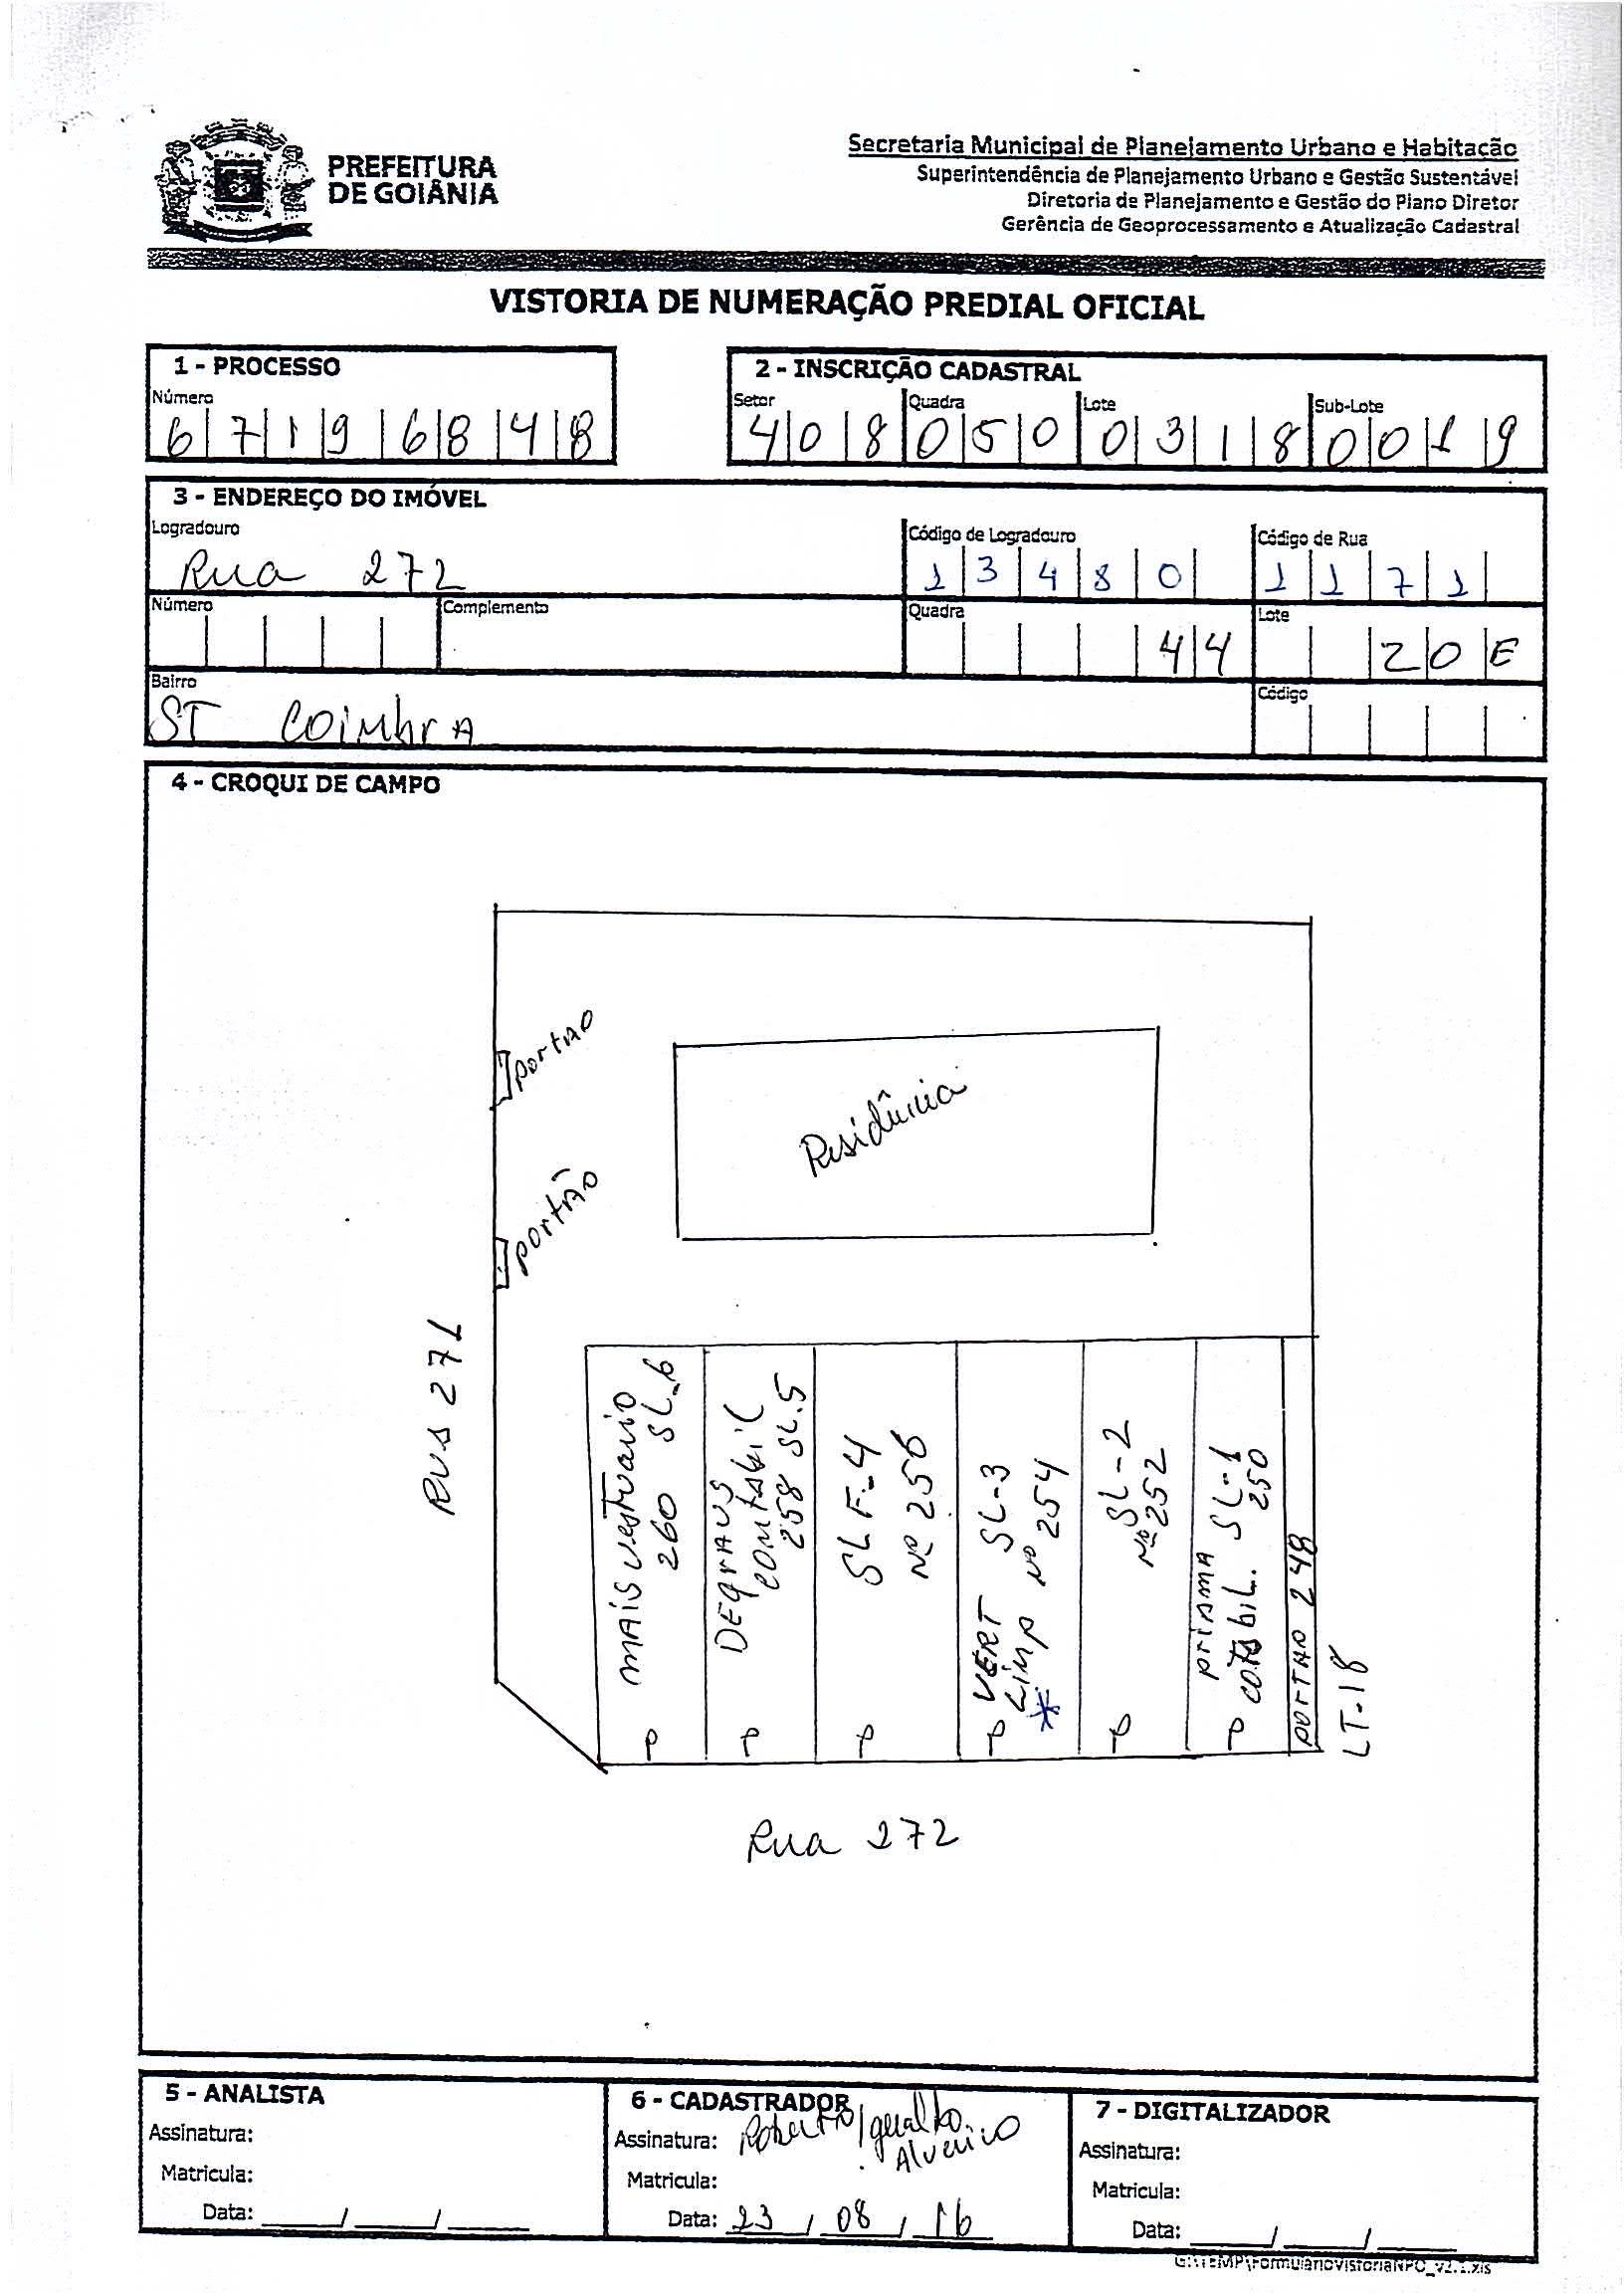 PREFEITURA
DE GOIÂNIA
Secretaria Municipal de Planejamento Urbano e Habitação
Superintendência de Planejamento Urbano e Gestão Sustentável
Diretoria de Planejamento e Gestão do Plano Diretor
Gerência de Geoprocessamento e Atualização Cadastral
VISTORIA DE NUMERAÇÃO PREDIAL OFICIAL
1 - PROCESSO
Número
6 7 1 9 6 8 4 8
2 - INSCRIÇÃO CADASTRAL
Setor Quadra Lote Sub-Lote
4 0 8 0 5 0 0 3 1 8 0 0 1 9
3 - ENDEREÇO DO IMÓVEL
Logradouro Código de Logradouro Código de Rua
Rua 272 1 3 4 8 0 1 1 7 1
Número Complemento Quadra Lote
4 4 2 0 E
Bairro Código
ST Coimbra
4 - CROQUI DE CAMPO
portao
Residência
portão
RUS 271
MAIS vestuario
260 SL-6
DEGRAUS
contabil
258 SL.5
SL F-4
Nº 256
VERT SL-3
Limp Nº 254
*
SL-2
Nº 252
prisma SL-1
contabil. 250
portao 248
LT-18
Rua 272
5 - ANALISTA
Assinatura:
Matricula:
Data: ____/____/____
6 - CADASTRADOR
Assinatura: Roberto/geraldo.
Matricula:
Data: 23/08/16
7 - DIGITALIZADOR
Assinatura:
Matricula:
Data: ____/____/____
G:\TEMP\FormularioVistoriaNPO_v2.1.xls